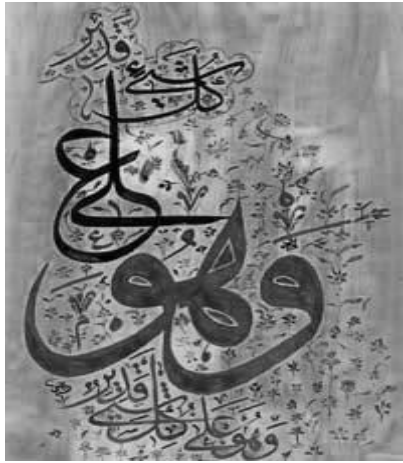 وهو
على
كل شيء
قدير
وهو على كل شيء قدير